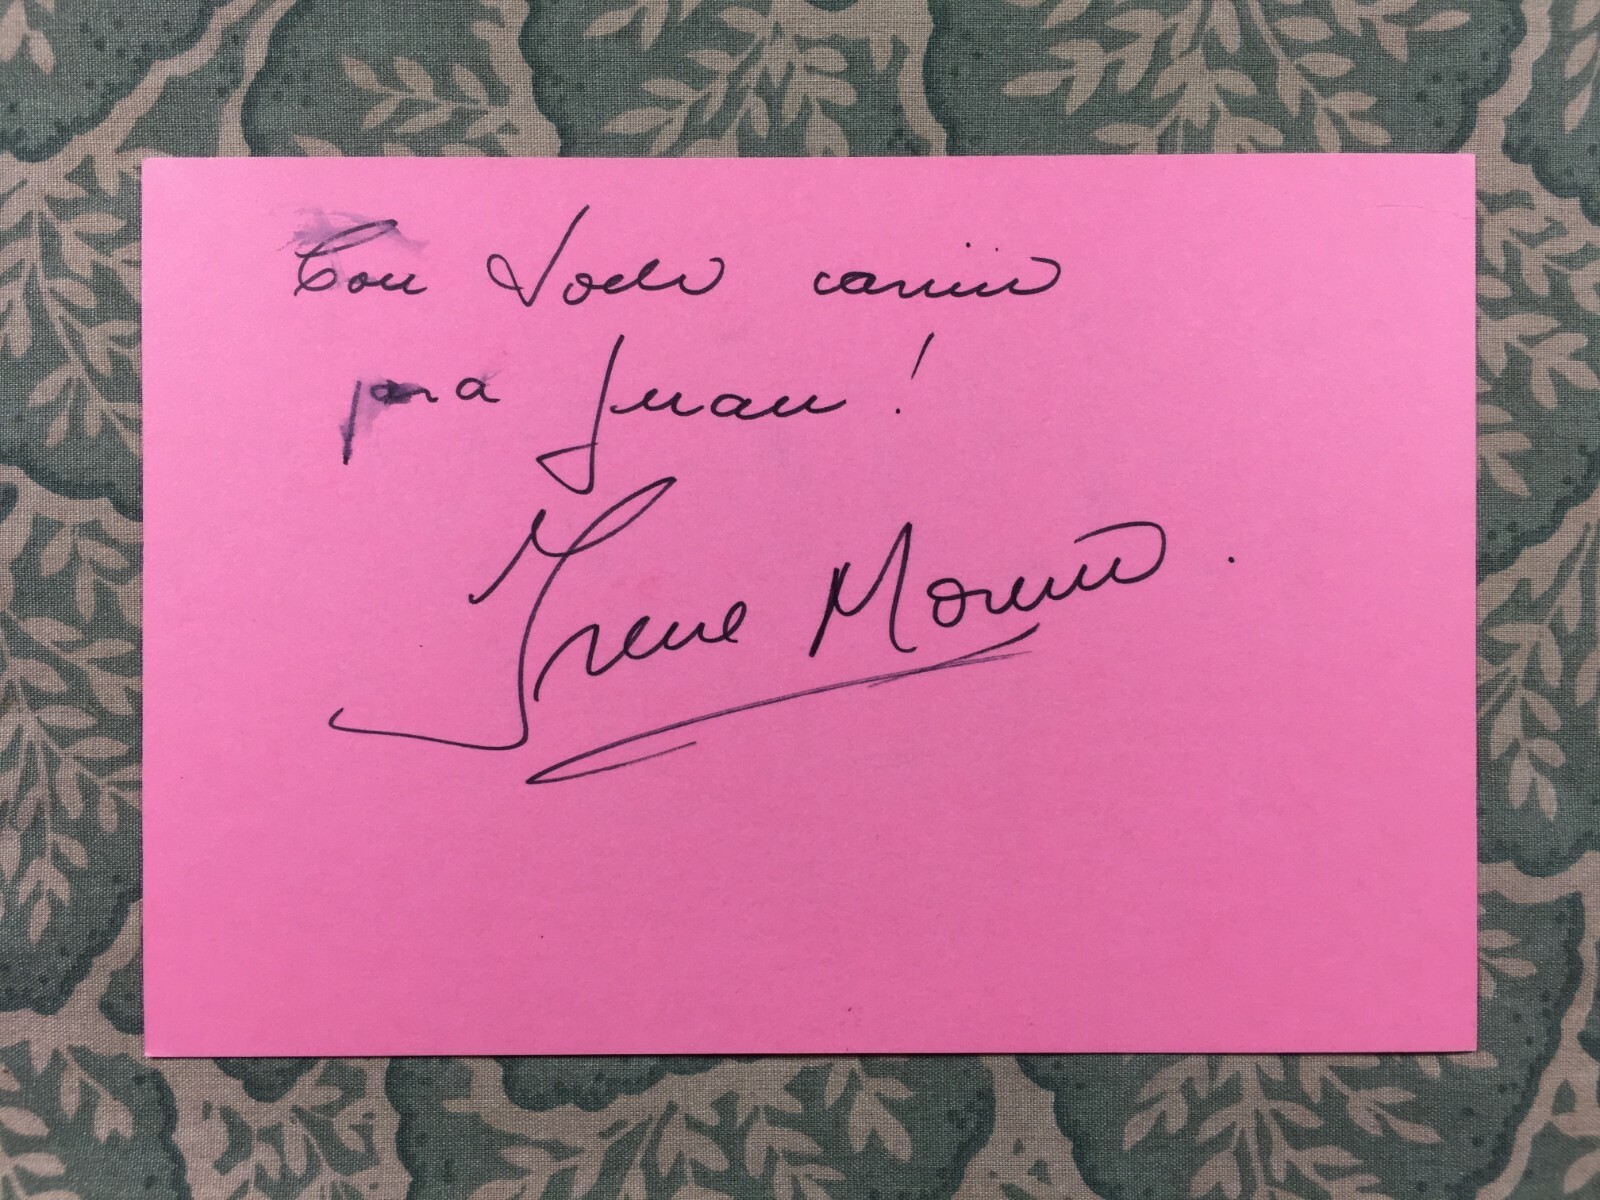 Con todo cariño
para Juan!
Irene Moreno.